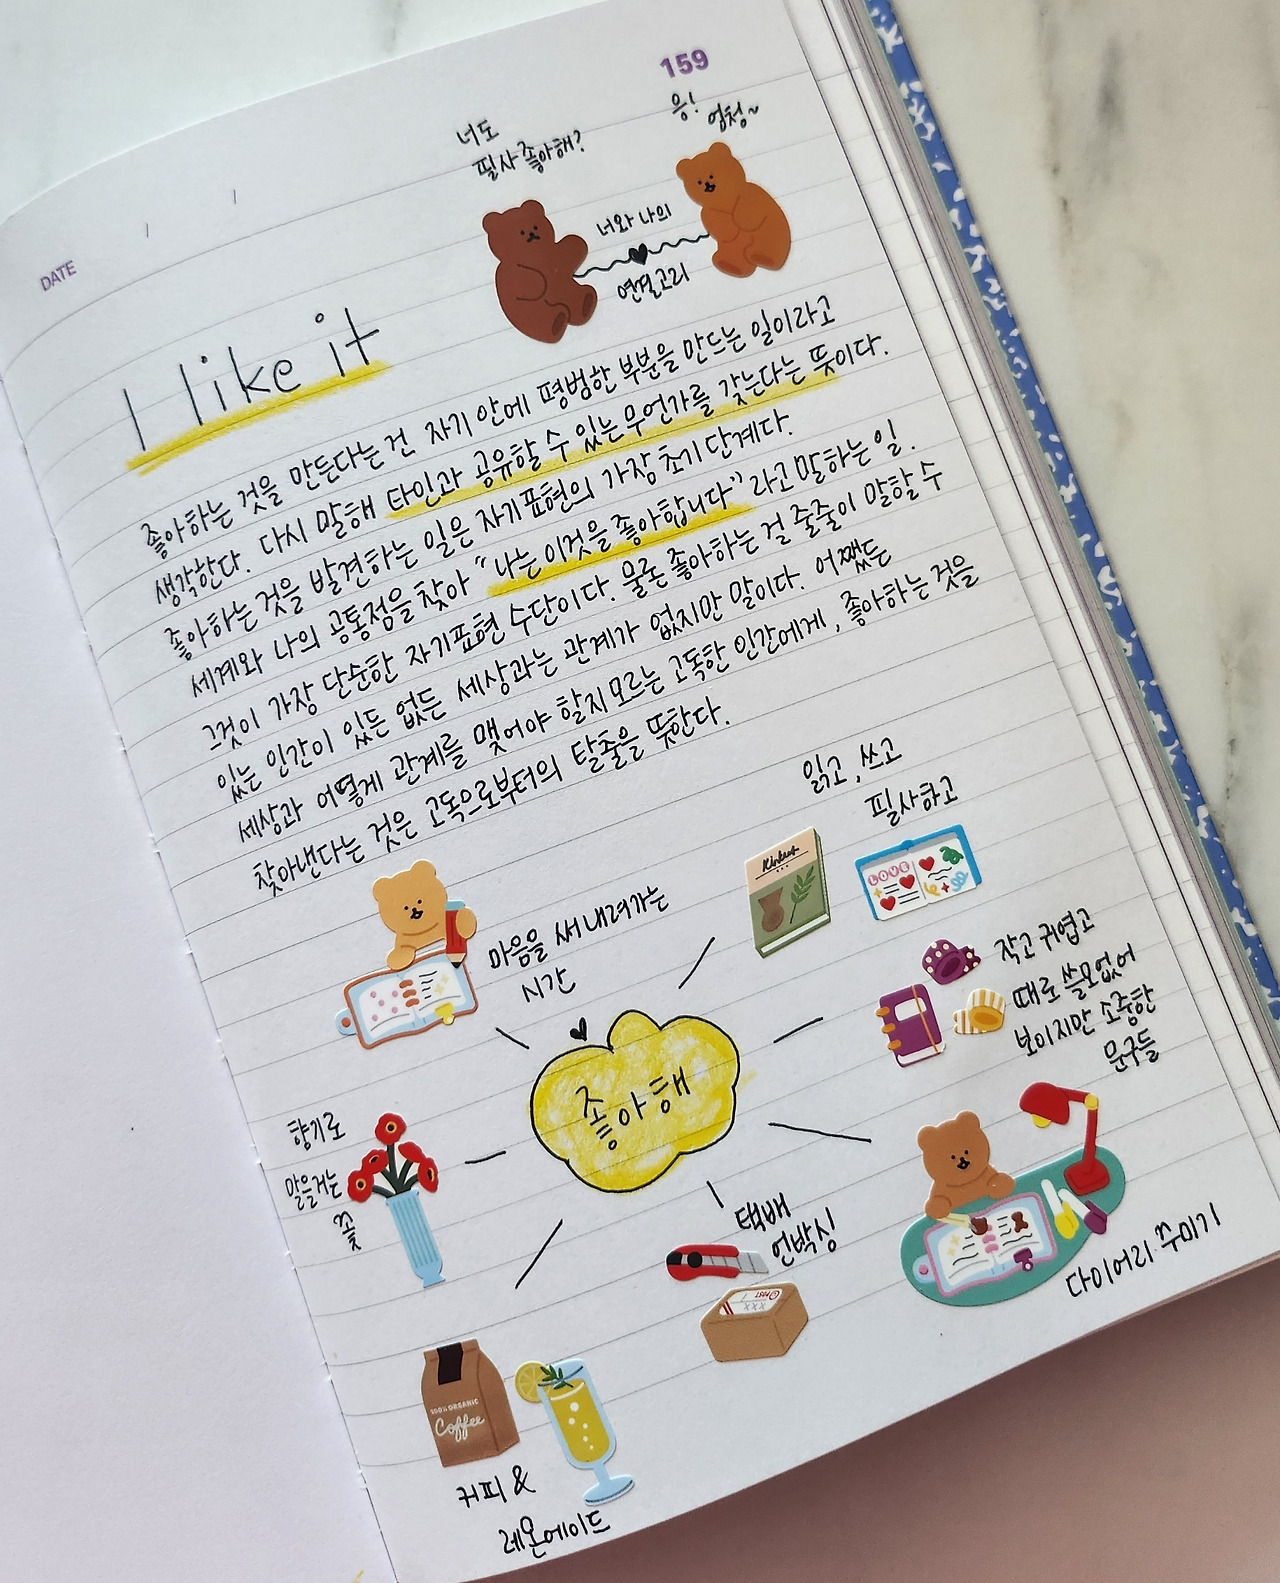 159
DATE
너도
필사 좋아해?
응!
엄청~
너와 나의
연결고리
I like it
좋아하는 것을 만든다는 건 자기 안에 평범한 부분을 만드는 일이라고
생각한다. 다시 말해 타인과 공유할 수 있는 무언가를 갖는다는 뜻이다.
좋아하는 것을 발견하는 일은 자기표현의 가장 초기 단계다.
세계와 나의 공통점을 찾아 "나는 이것을 좋아합니다" 라고 말하는 일.
그것이 가장 단순한 자기표현 수단이다. 물론 좋아하는 걸 줄줄이 말할 수
있는 인간이 있든 없든 세상과는 관계가 없지만 말이다. 어쨌든
세상과 어떻게 관계를 맺어야 할지 모르는 고독한 인간에게, 좋아하는 것을
찾아낸다는 것은 고독으로부터의 탈출을 뜻한다.
읽고, 쓰고
필사하고
LOVE
마음을 써 내려가는
시간
작고 귀엽고
때로 쓸모없어
보이지만 소중한
문구들
좋아해
향기로
말을거는
꽃
택배
언박싱
POST
XXX
다이어리 꾸미기
100% ORGANIC
Coffee
커피 &
레몬에이드